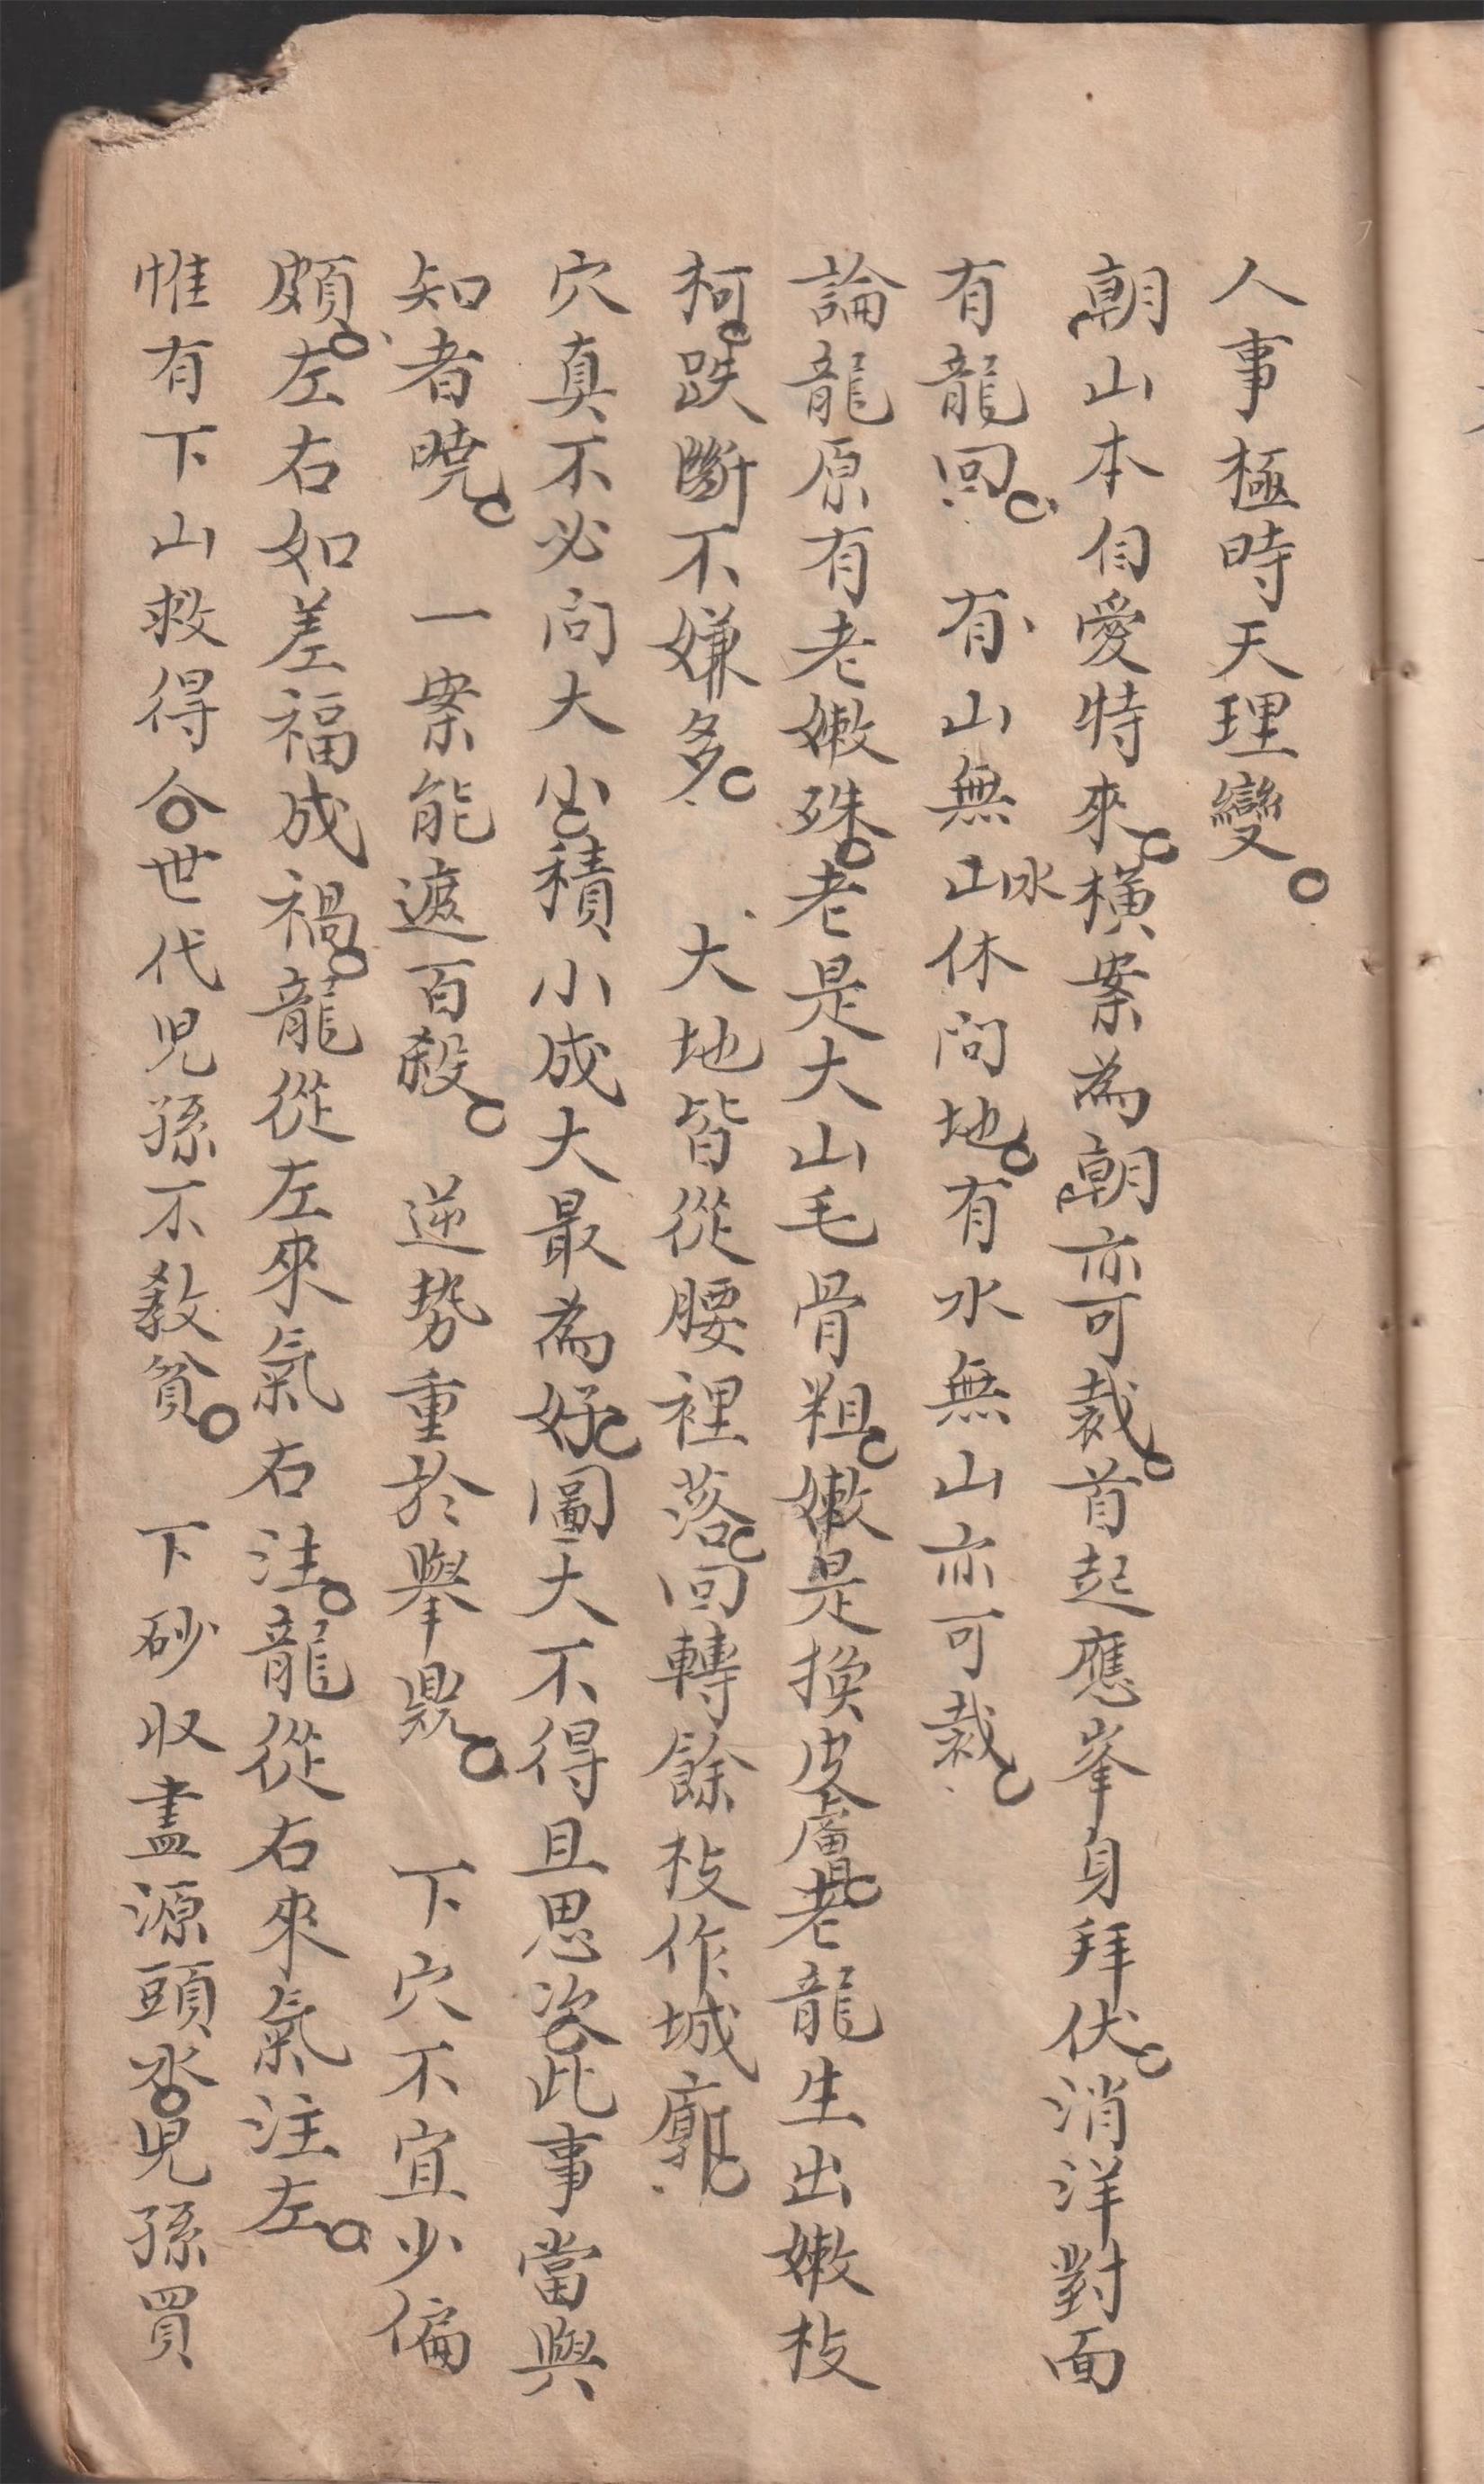 人事極時天理變。
朝山本自愛特來。橫案為朝亦可裁。首起應峯身拜伏。消洋對面
有龍回。有山無山水休問地。有水無山亦可裁。
論龍原有老嫩殊。老是大山毛骨粗。嫩是換皮膚。老龍生出嫩枝
柯。跌斷不嫌多。大地皆從腰裡落。回轉餘枝作城廓。
穴真不必問大小。積小成大最為好。圖大不得且思次。此事當與
知者曉。一案能遮百殺。逆勢重於舉鼎。下穴不宜少偏
頗。左右如差福成禍。龍從左來氣右注。龍從右來氣注左。
惟有下山救得人。世代児孫不教貧。下砂收盡源頭水。児孫買